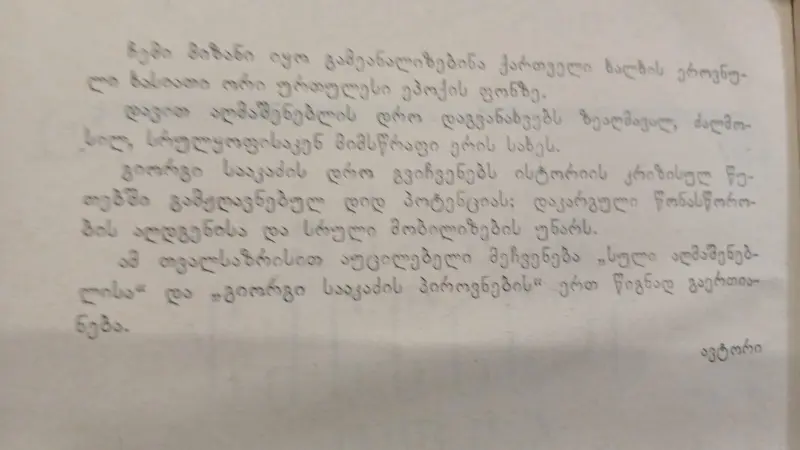 ჩემი მიზანი იყო გამეანალიზებინა ქართველი ხალხის ეროვნუ-
ლი ხასიათი ორი ურთულესი ეპოქის ფონზე.
დავით აღმაშენებლის დრო დაგვანახვებს ზეაღმავალ, ძალმო-
სილ, სრულყოფისაკენ მიმსწრაფი ერის სახეს.
გიორგი სააკაძის დრო გვიჩვენებს ისტორიის კრიზისულ წუ-
თებში გამჟღავნებულ დიდ პოტენციას; დაკარგული წონასწორო-
ბის აღდგენისა და სრული მობილიზების უნარს.
ამ თვალსაზრისით აუცილებელი მეჩვენება „სული აღმაშენებ-
ლისა“ და „გიორგი სააკაძის პიროვნების“ ერთ წიგნად გაერთია-
ნება.
ავტორი